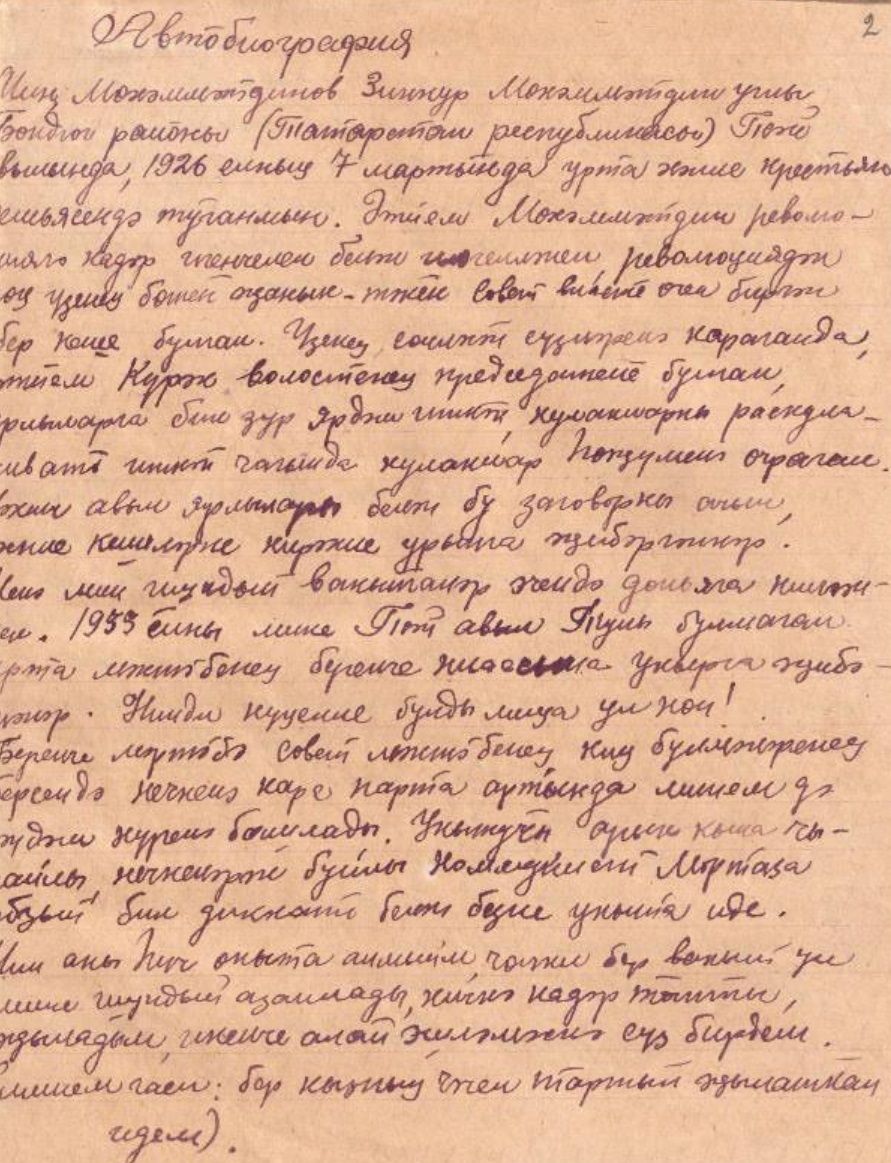 Автобиография
2
Мин, Мөхәммәтдинов Зиннур Мөхәммәтдин улы,
Бондюг районы (Татарстан республикасы) Пөти
авылында, 1926 елның 7 мартында урта хәлле крестьян
семьясендә туганмын. Әтием Мөхәммәтдин револю-
цияга кадәр игенчелек белән революциядән
соң үзенең бөтен җанын-тәнен Совет власте өчен биргән
бер кеше булган. Үзенең сөйләгән сүзләренә караганда,
әтием волостенең председателе булган,
ярлыларга бик зур ярдәм иткән, кулакларны раскула-
чивать иткән чагында кулаклар һөҗүменә очраган.
Ләкин авыл ярлылары белән бу заговорны ачып,
кешеләрне кирәкле урынга җибәргәннәр.
Менә мин шундый вакытлар эчендә дөньяга килгән-
мен. 1933 елны мине авыл Тулы булмаган
урта мәктәбенең беренче классына укырга җибә-
рәләр. Нинди күңелле булды миңа ул көн!
Беренче мәртәбә совет мәктәбенең киң бүлмәләренең
берсендә кечкенә кара парта артында минем дә
гәүдәм күренә башлады. Укытучы арык кына чы-
райлы, кечкенәрәк буйлы Мортаза
абзый бик диккать белән безне укыта иде.
Мин аны һич оныта алмыйм, чөнки бер вакыт ул
мине шундый азаплады, кичкә кадәр тотты,
җыладым, икенче алай эшләмәскә сүз бирдем.
(Минем гаеп: бер кызның чәчен тартып җылаткан
идем).